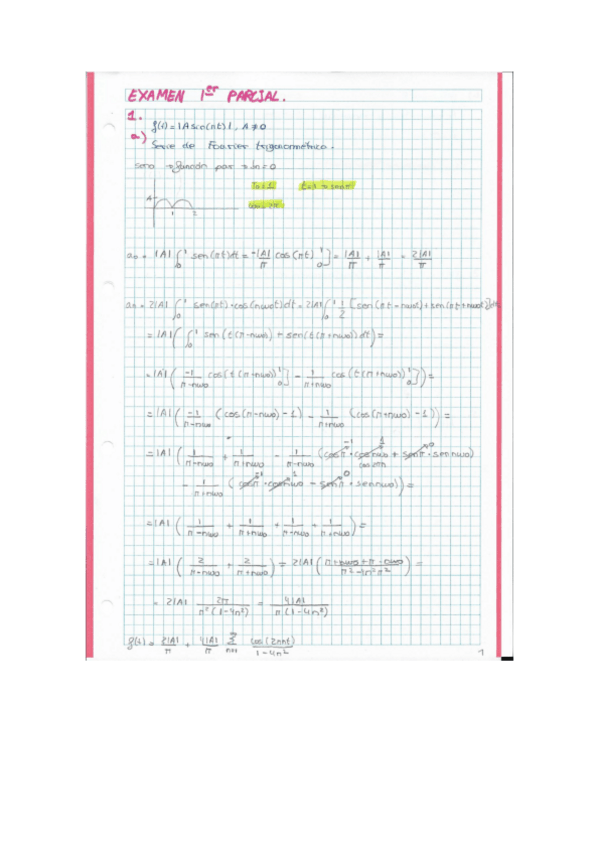 EXAMEN 1er PARCIAL.
1.
f(t) = |A sen(πt)|, A ≠ 0
a)
Serie de Fourier trigonométrica.
función par → bn = 0
T0 = 1
A
1 2
a0 = |A| ∫₀¹ sen(πt)dt = -|A|/π cos(πt)]₀¹ = |A|/π + |A|/π = 2|A|/π
an = 2|A| ∫₀¹ sen(πt)·cos(nω0t)dt = 2|A| ∫₀¹ 1/2 [sen(πt - nω0t) + sen(πt + nω0t)]dt
= |A| (∫₀¹ sen(t(π-nω0) + sen(t(π+nω0))dt) =
= |A| (-1/(π-nω0) cos(t(π-nω0))]₀¹ - 1/(π+nω0) cos(t(π+nω0))]₀¹) =
= |A| (-1/(π-nω0) (cos(π-nω0) - 1) - 1/(π+nω0) (cos(π+nω0) - 1)) =
= |A| (1/(π-nω0) + 1/(π+nω0) - 1/(π-nω0) (cosπ·cosnω0 + senπ·sennω0)
- 1/(π+nω0) (cosπ·cosnω0 - senπ·sennω0)) =
= |A| (1/(π-nω0) + 1/(π+nω0) + 1/(π-nω0) + 1/(π+nω0)) =
= |A| (2/(π-nω0) + 2/(π+nω0)) = 2|A| (π+nω0+π-nω0/π²-4n²π²) =
= 2|A| 2π/π²(1-4n²) = 4|A|/π(1-4n²)
f(t) = 2|A|/π + 4|A|/π Σ n=1 cos(2πnt)/1-4n²
1